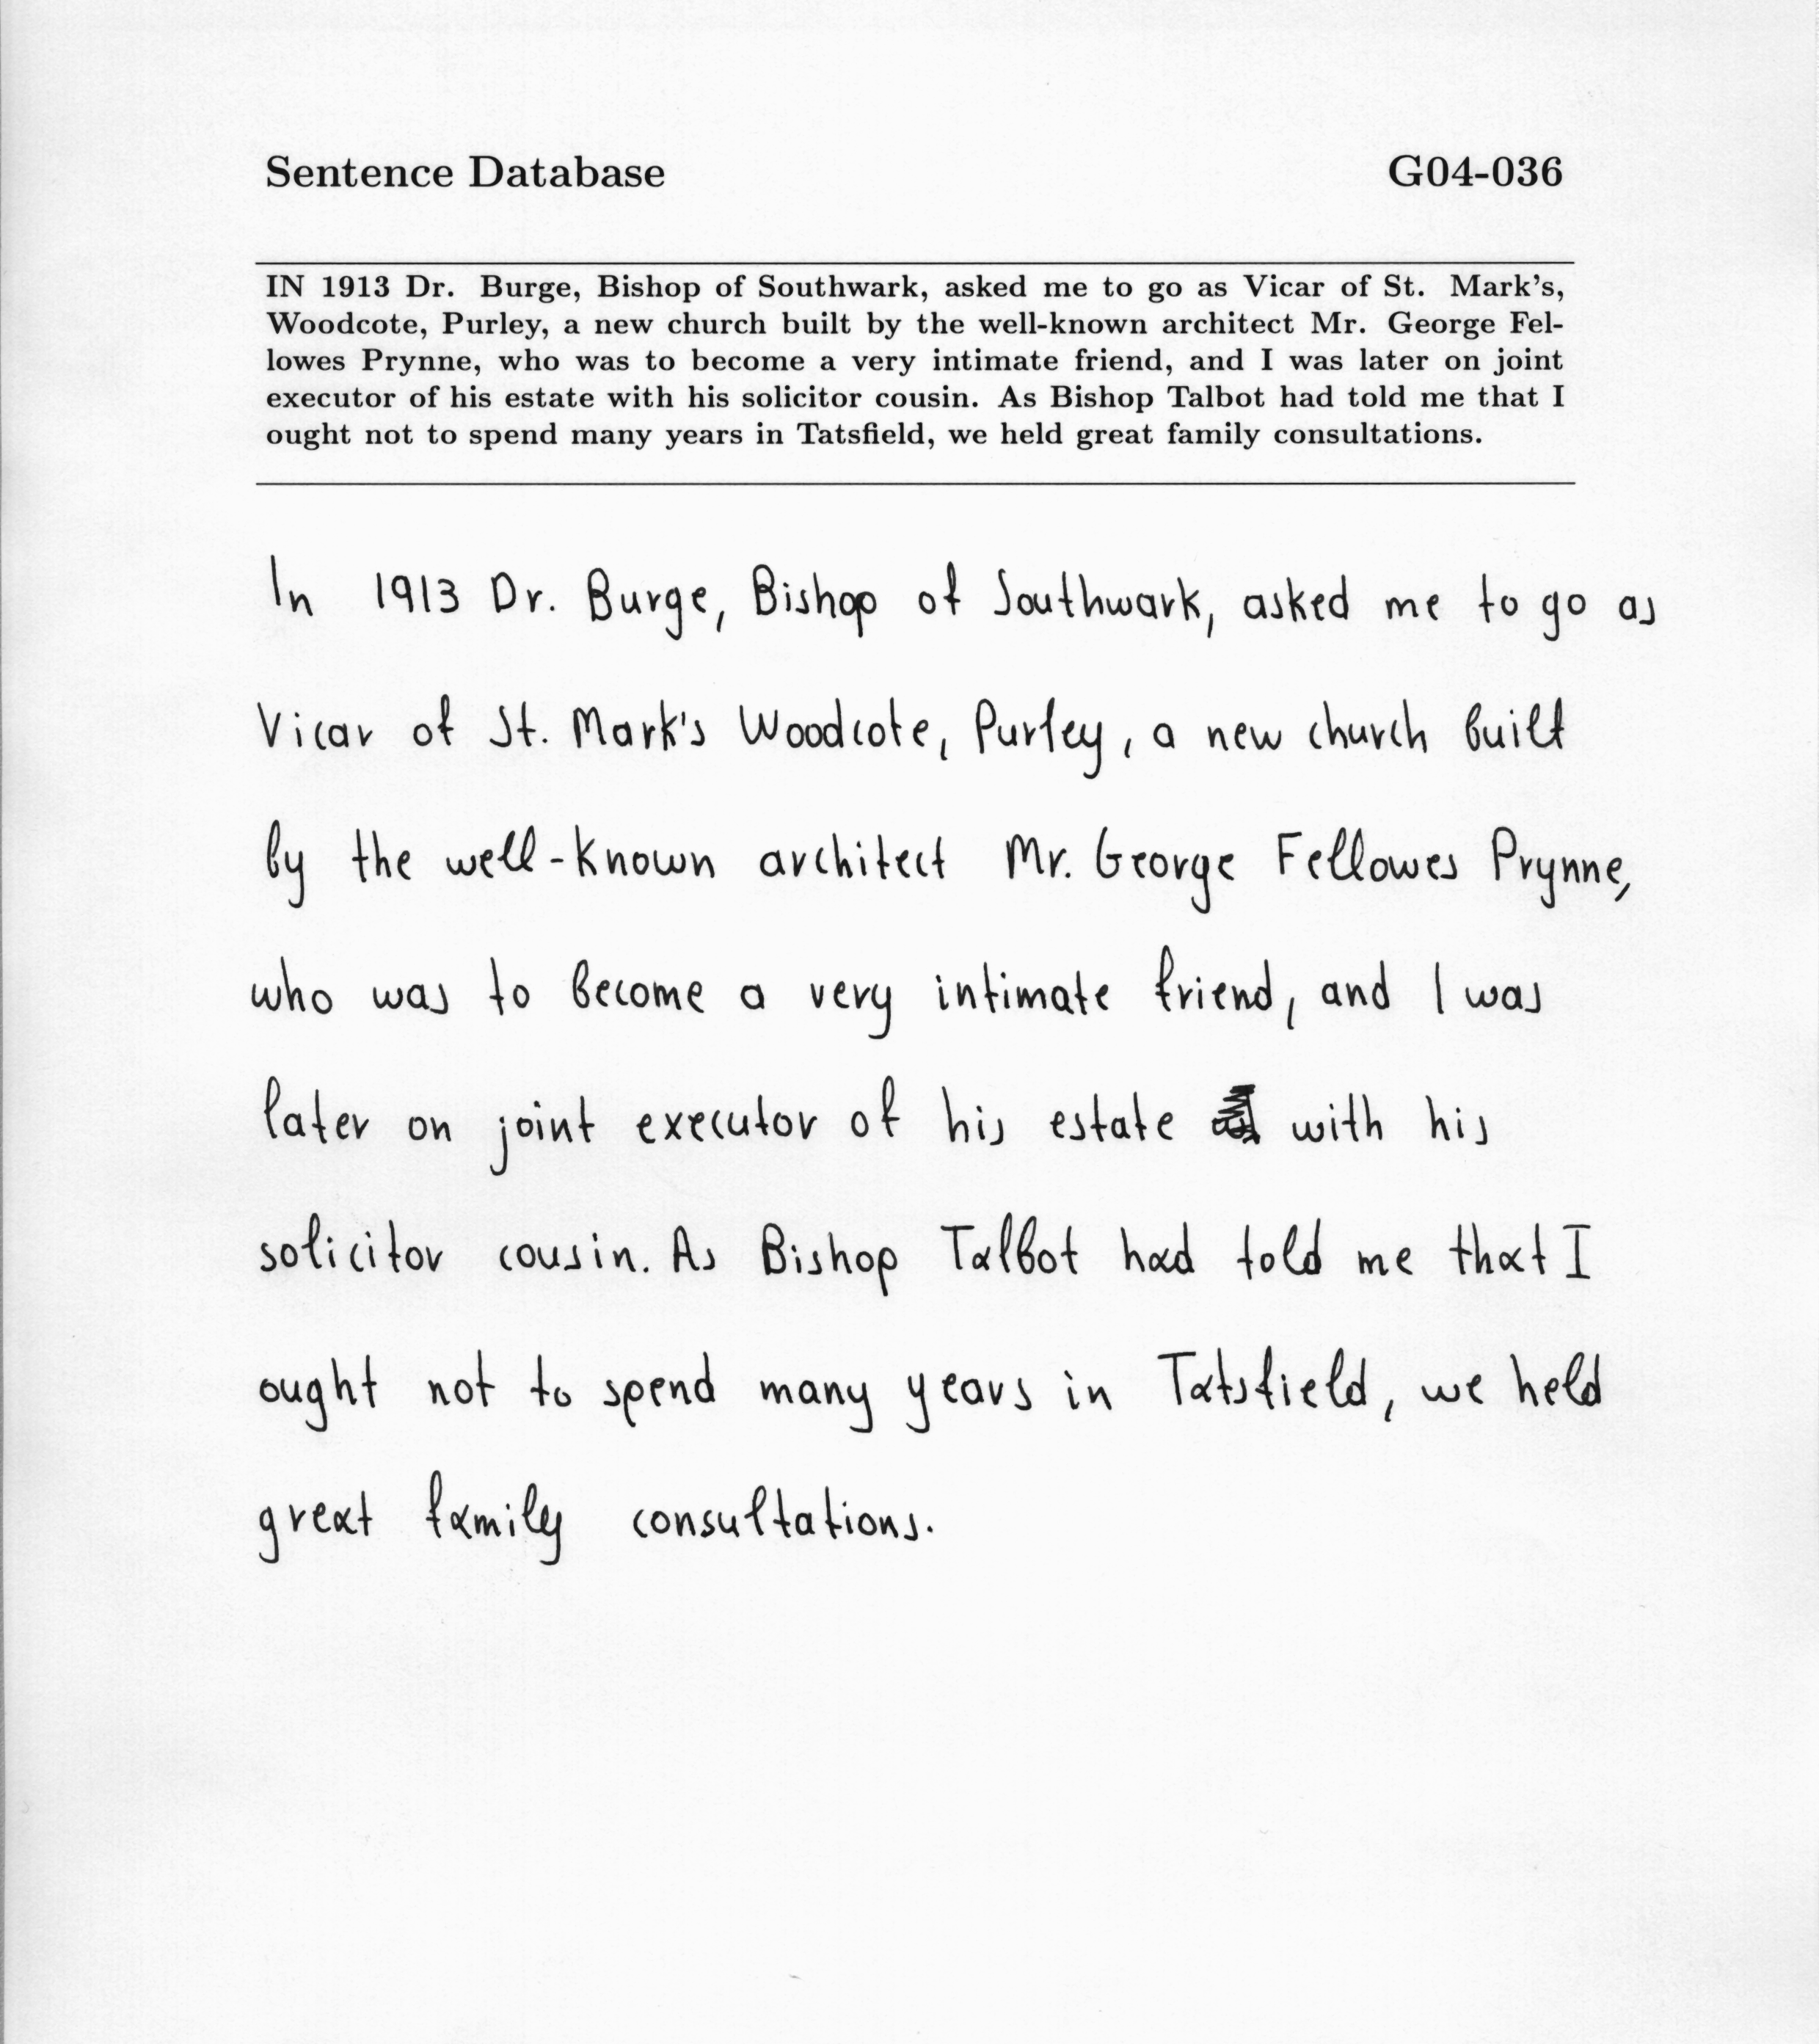 Sentence Database G04-036
IN 1913 Dr. Burge, Bishop of Southwark, asked me to go as Vicar of St. Mark's,
Woodcote, Purley, a new church built by the well-known architect Mr. George Fel-
lowes Prynne, who was to become a very intimate friend, and I was later on joint
executor of his estate with his solicitor cousin. As Bishop Talbot had told me that I
ought not to spend many years in Tatsfield, we held great family consultations.
In 1913 Dr. Burge, Bishop of Southwark, asked me to go as
Vicar of St. Mark's Woodcote, Purley, a new church built
by the well-known architect Mr. George Fellowes Prynne,
who was to become a very intimate friend, and I was
later on joint executor of his estate with his
solicitor cousin. As Bishop Talbot had told me that I
ought not to spend many years in Tatsfield, we held
great family consultations.